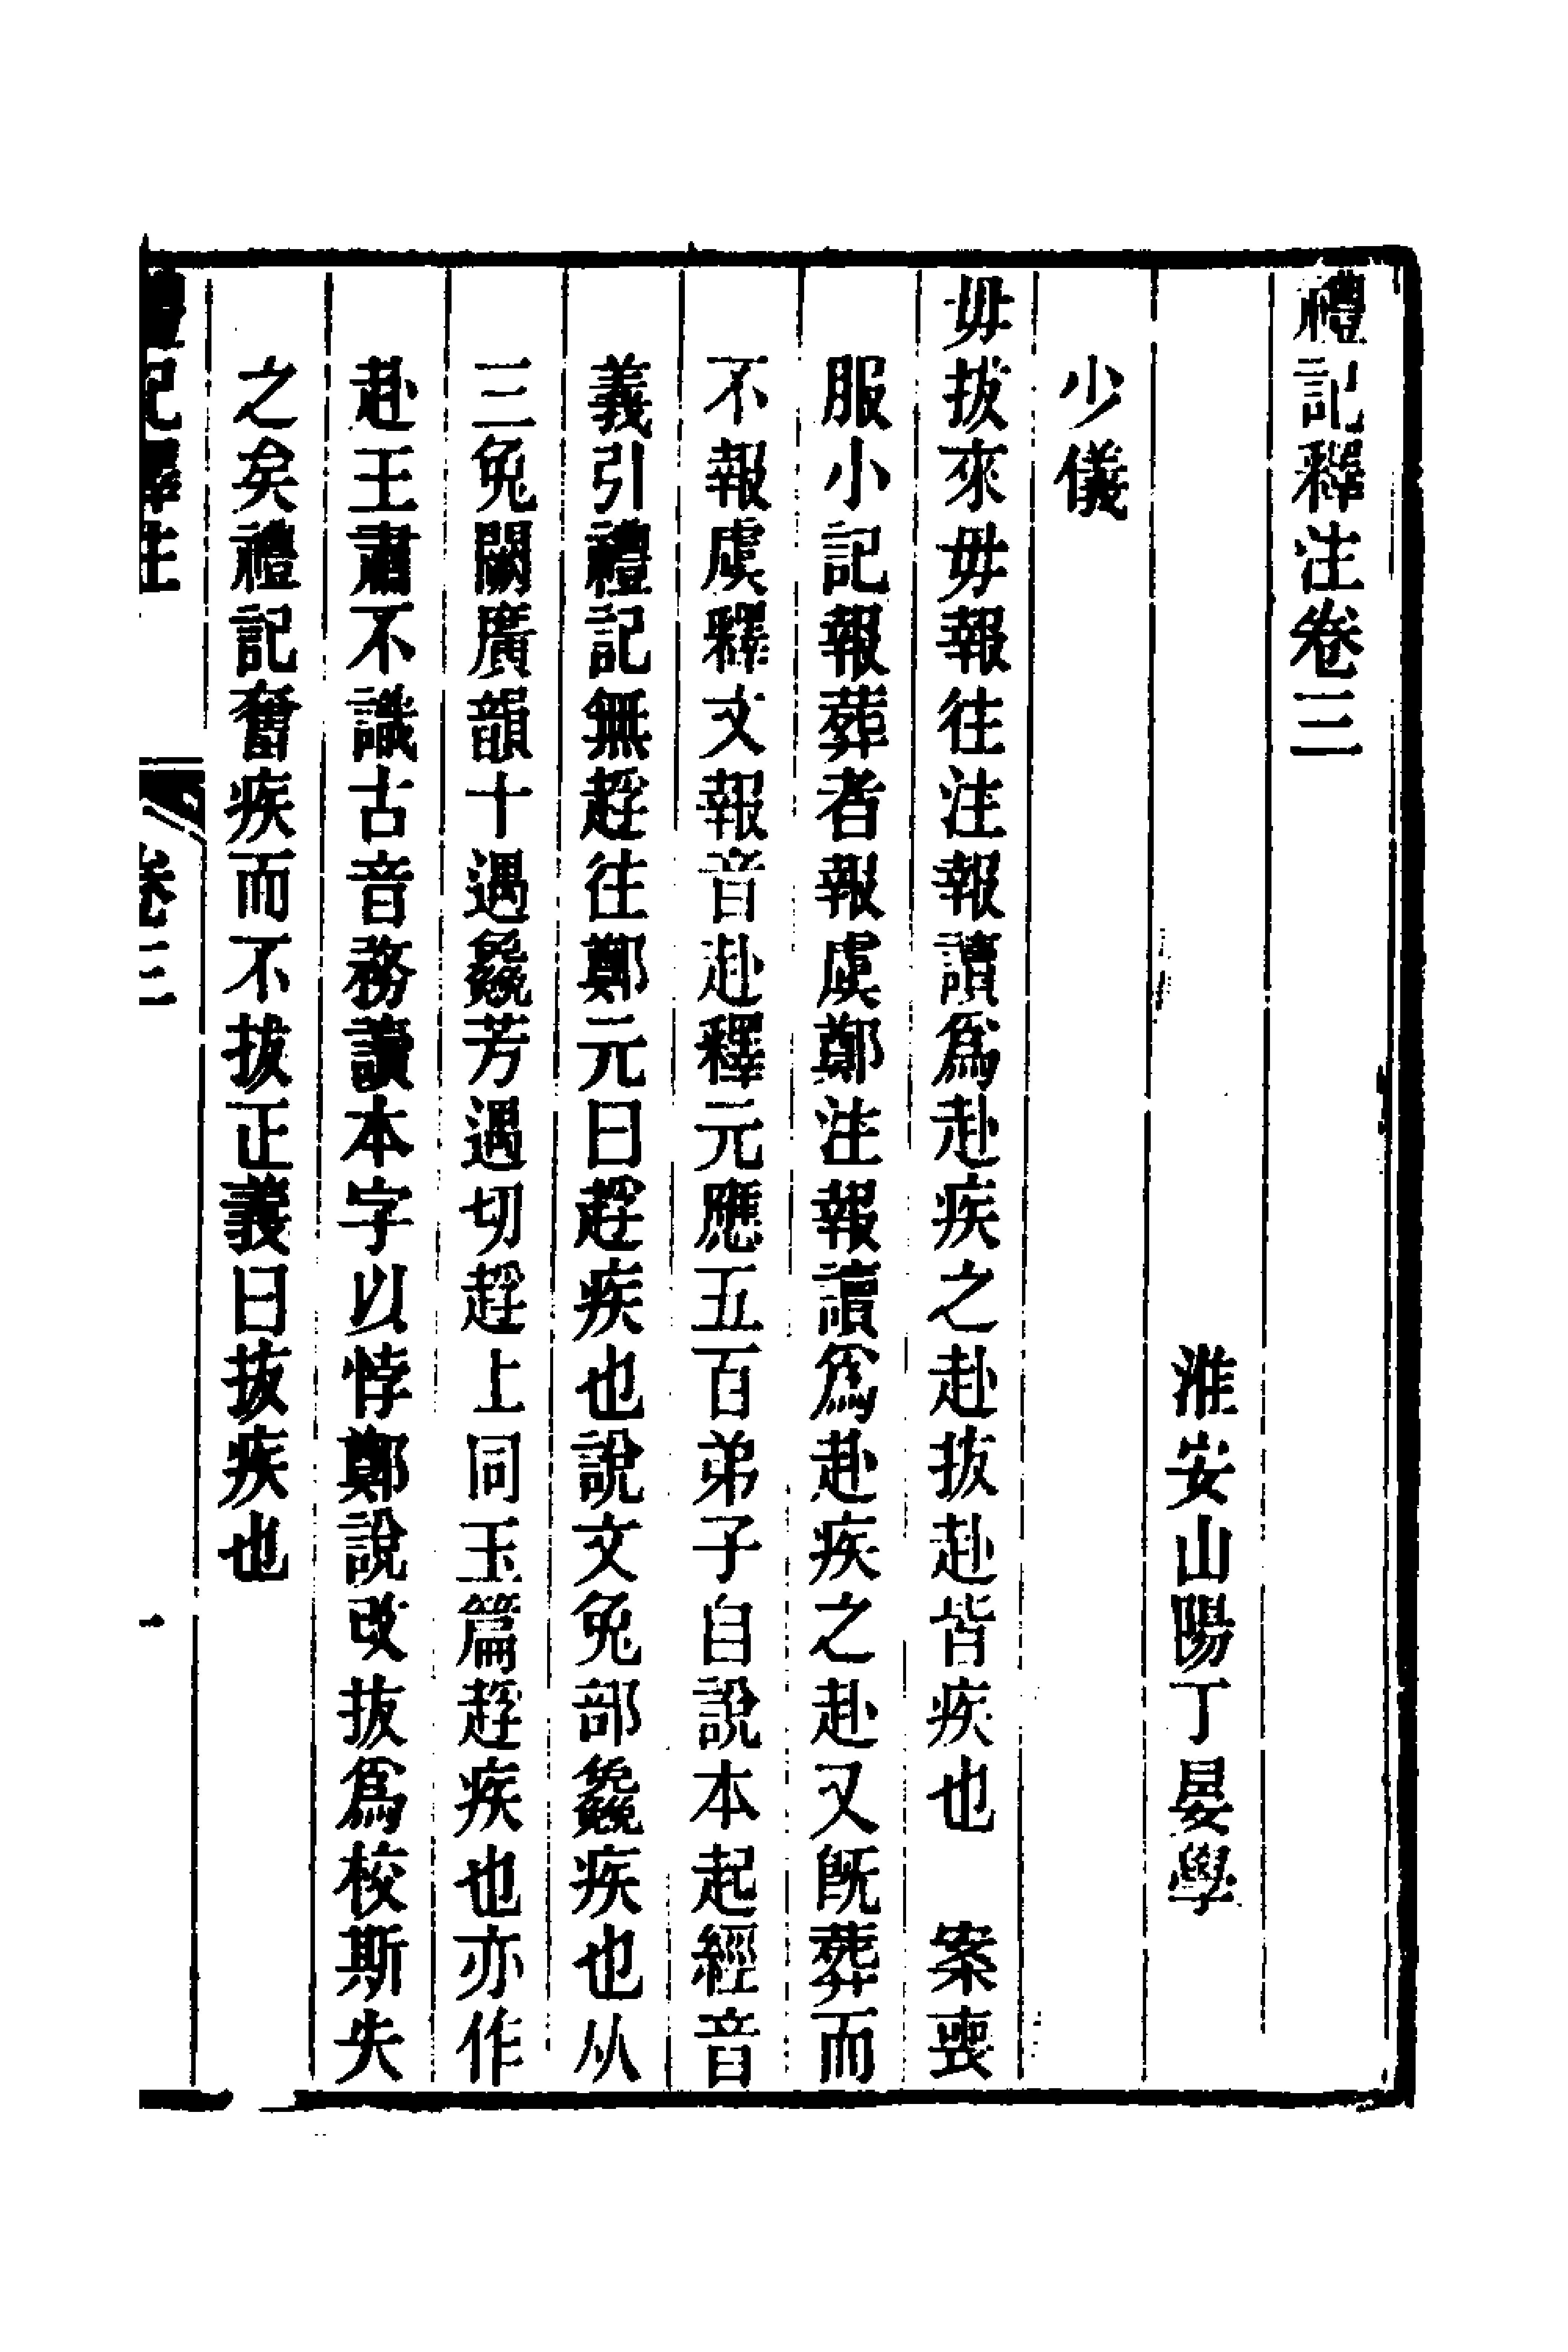 禮記釋注卷三
淮安山陽丁晏學
少儀
毋拔來毋報往注報讀爲赴疾之赴拔赴皆疾也　案喪
服小記報葬者報虞鄭注報讀爲赴疾之赴又旣葬而
不報虞釋文報音赴釋元應五百弟子自說本起經音
義引禮記無䞯往鄭元曰䞯疾也說文兔部㲋疾也从
三兔闕廣韻十遇㲋芳遇切䞯上同玉篇䞯疾也亦作
赴王肅不識古音務讀本字以悖鄭說改拔爲校斯失
之矣禮記奮疾而不拔正義曰拔疾也
禮記釋注　卷三　一